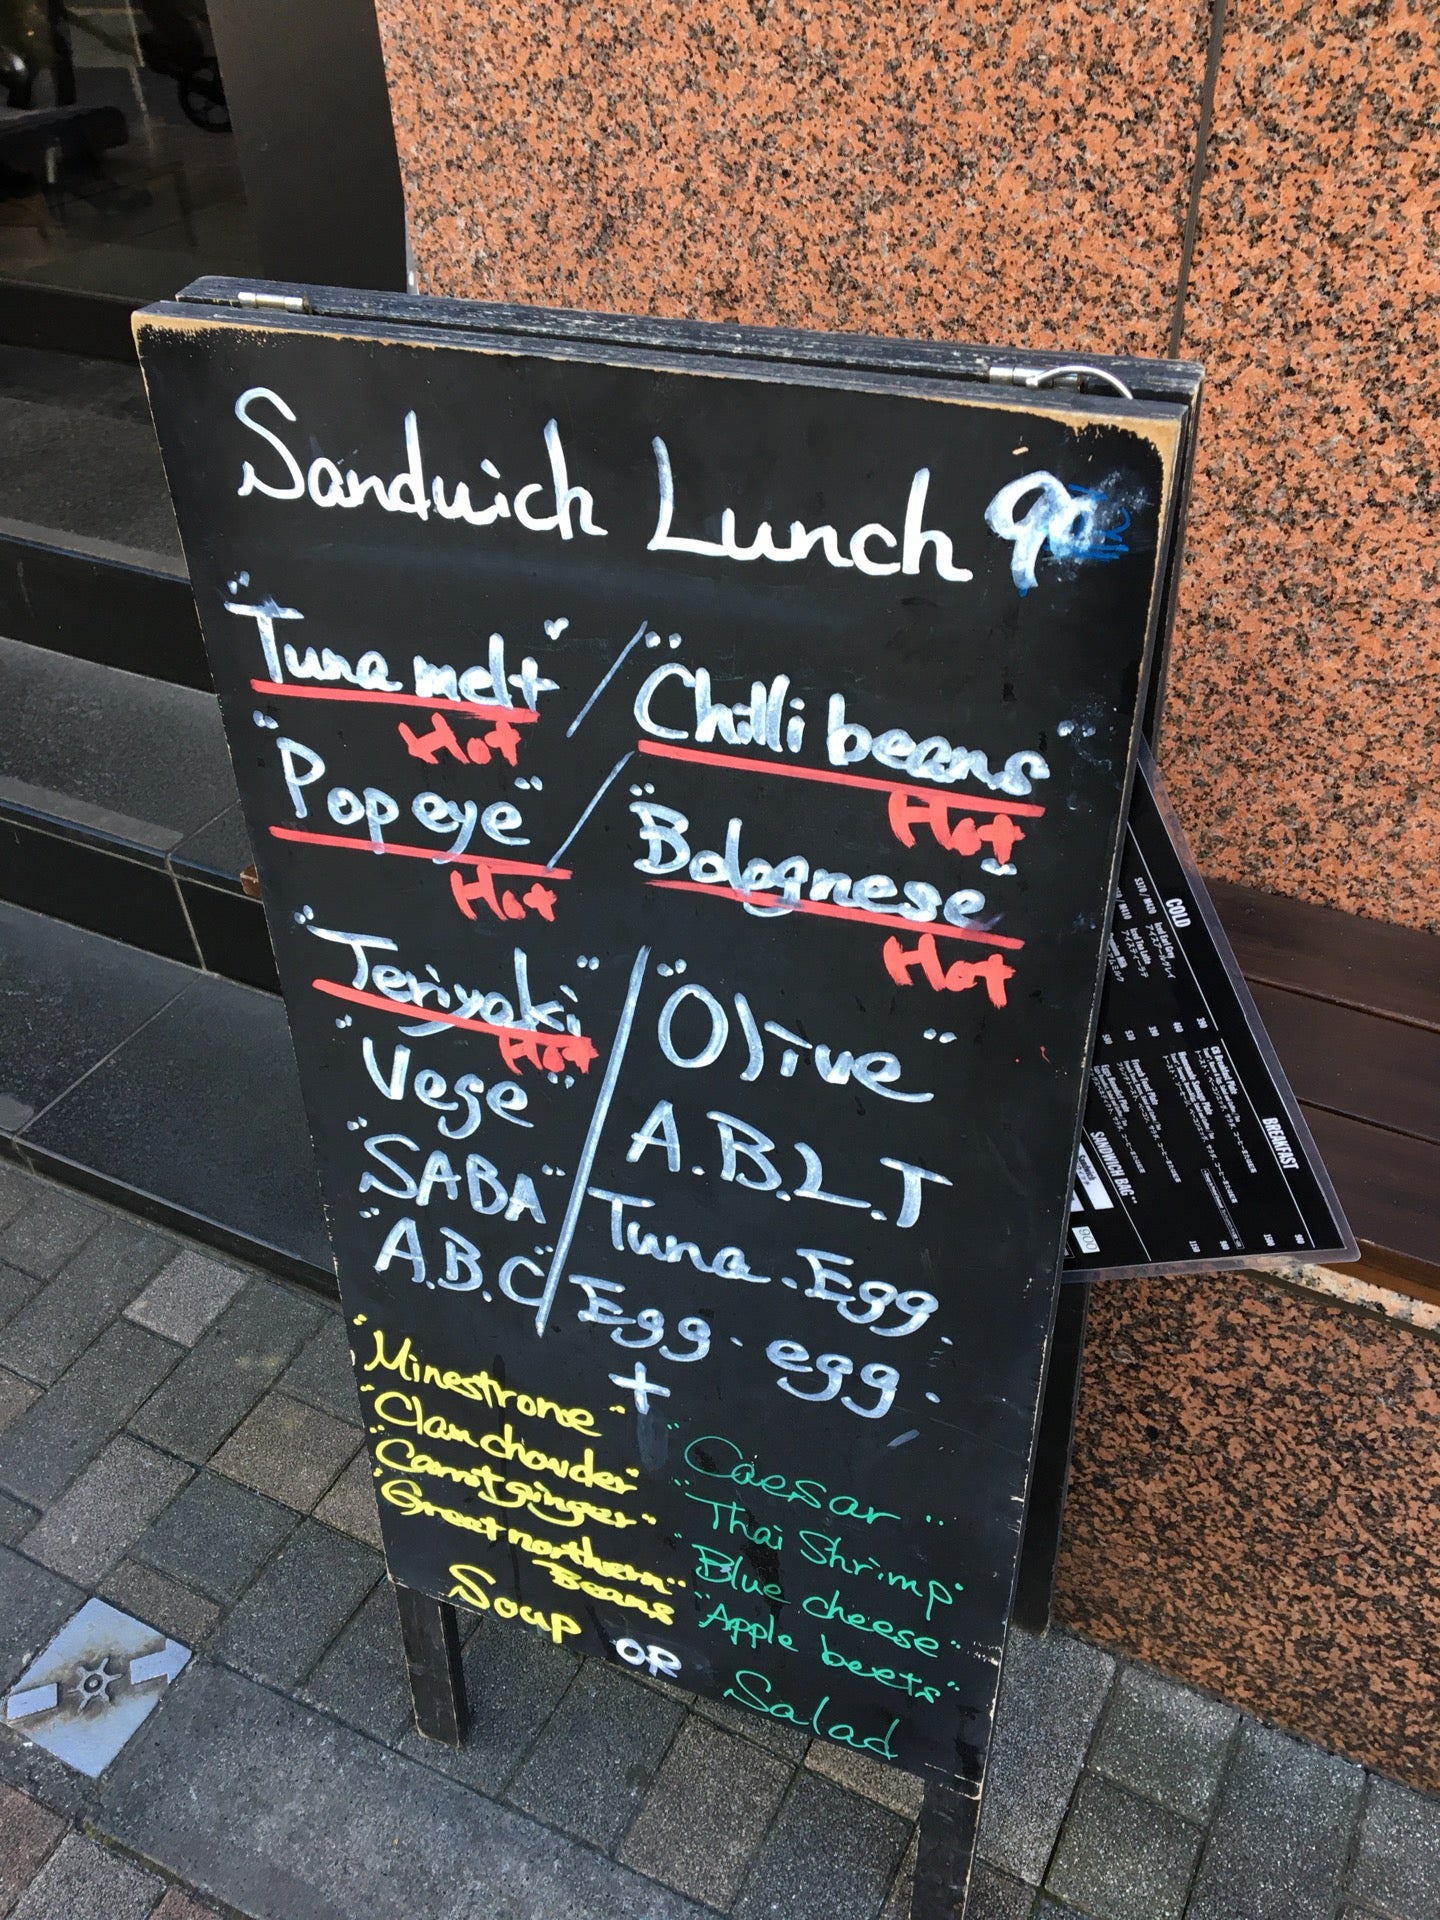 Sandwich Lunch
"Tuna melt" / "Chilli beans"
Hot Hot
"Popeye" / "Bolognese"
Hot Hot
"Teriyaki" / "Olive"
Hot
"Vege" A.B.L.T
"SABA" Tuna.Egg.
"A.B.C" Egg.egg.
+
"Minestrone" "Caesar"
"Clam chowder" "Thai Shrimp"
"Carrot ginger" "Blue cheese"
"Great northern" "Apple beets"
Beans
Soup OR Salad
COLD
BREAKFAST
SANDWICH BAG